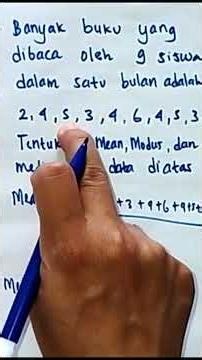 Banyak buku yang
dibaca oleh 9 siswa
dalam satu bulan adalah
2, 4, 5, 3, 4, 6, 4, 5, 3
Mean, Modus, dan
data diatas
+3+4+6+4+5+